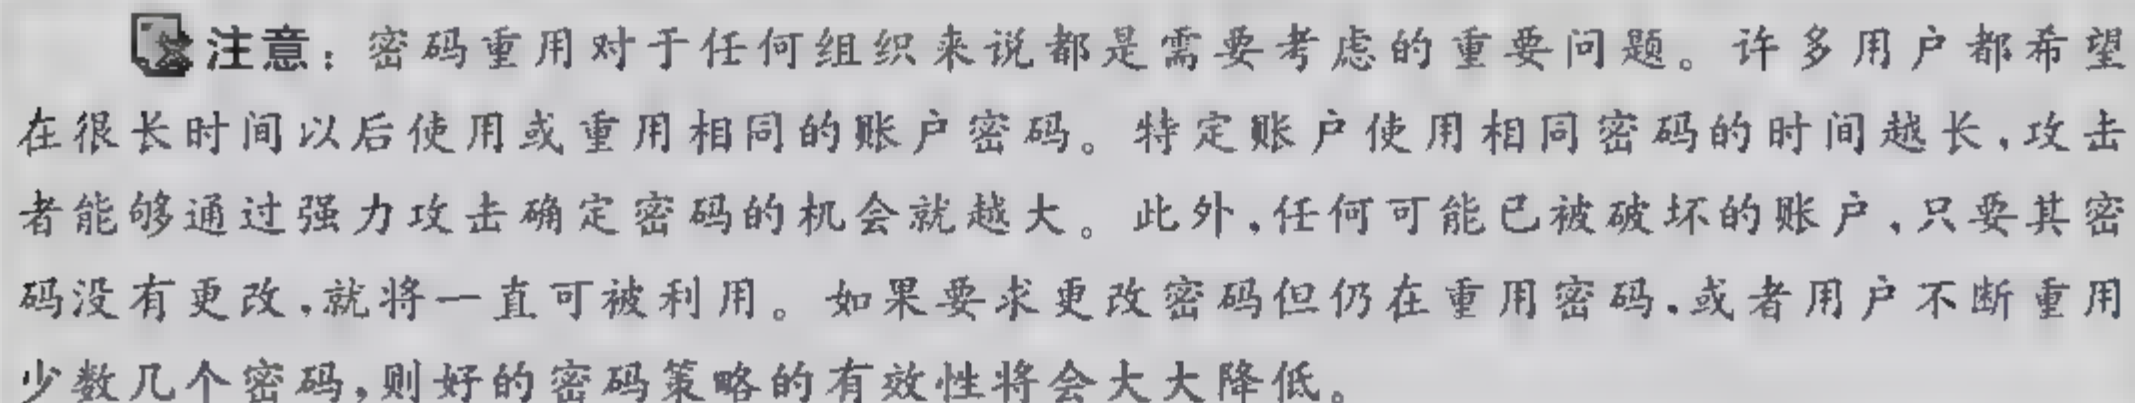 注意：密码重用对于任何组织来说都是需要考虑的重要问题。许多用户都希望
在很长时间以后使用或重用相同的账户密码。特定账户使用相同密码的时间越长，攻击
者能够通过强力攻击确定密码的机会就越大。此外，任何可能已被破坏的账户，只要其密
码没有更改，就将一直可被利用。如果要求更改密码但仍在重用密码，或者用户不断重用
少数几个密码，则好的密码策略的有效性将会大大降低。